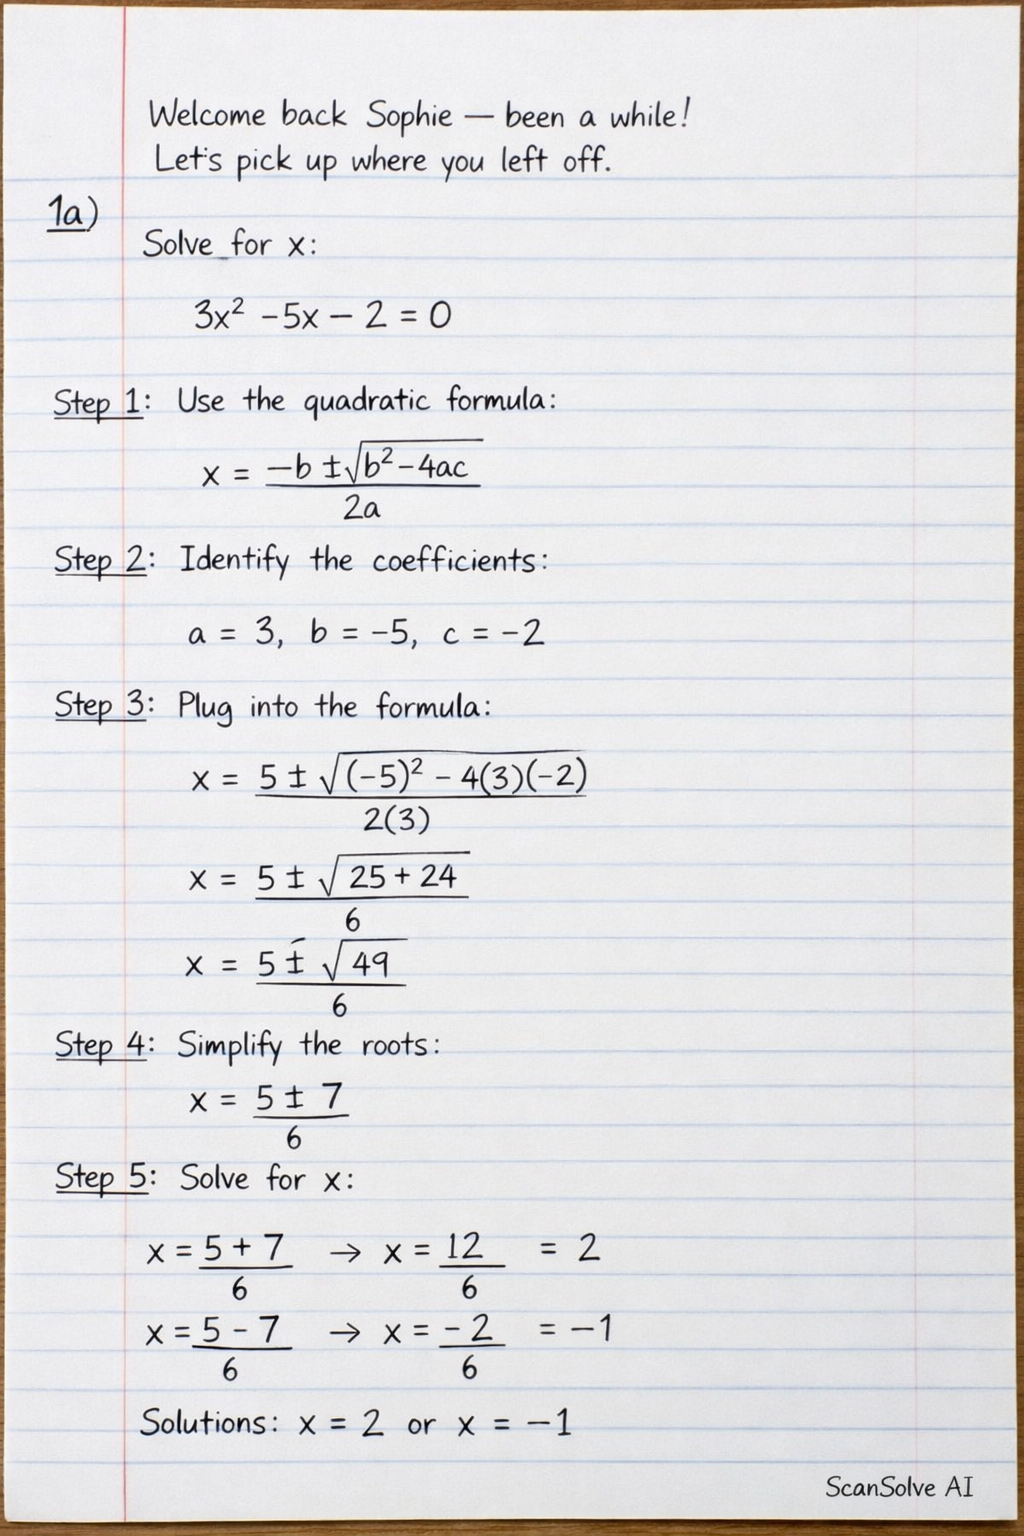 Welcome back Sophie — been a while!
Let's pick up where you left off.
1a)
Solve for x:
3x² -5x - 2 = 0
Step 1: Use the quadratic formula:
x = (-b ±√(b² - 4ac)) / 2a
Step 2: Identify the coefficients:
a = 3, b = -5, c = -2
Step 3: Plug into the formula:
x = (5 ± √((-5)² - 4(3)(-2))) / 2(3)
x = (5 ± √(25 + 24)) / 6
x = (5 ± √49) / 6
Step 4: Simplify the roots:
x = (5 ± 7) / 6
Step 5: Solve for x:
x = (5 + 7) / 6 → x = 12 / 6 = 2
x = (5 - 7) / 6 → x = -2 / 6 = -1
Solutions: x = 2 or x = -1
ScanSolve AI